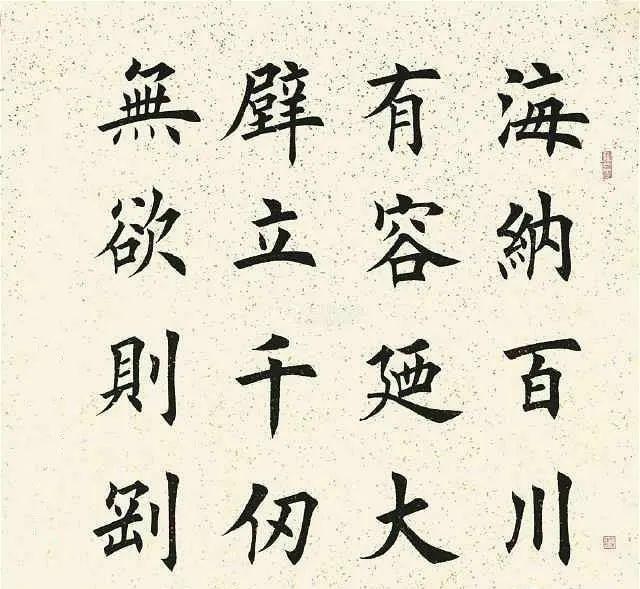 海納百川
有容廼大
壁立千仞
無欲則剛